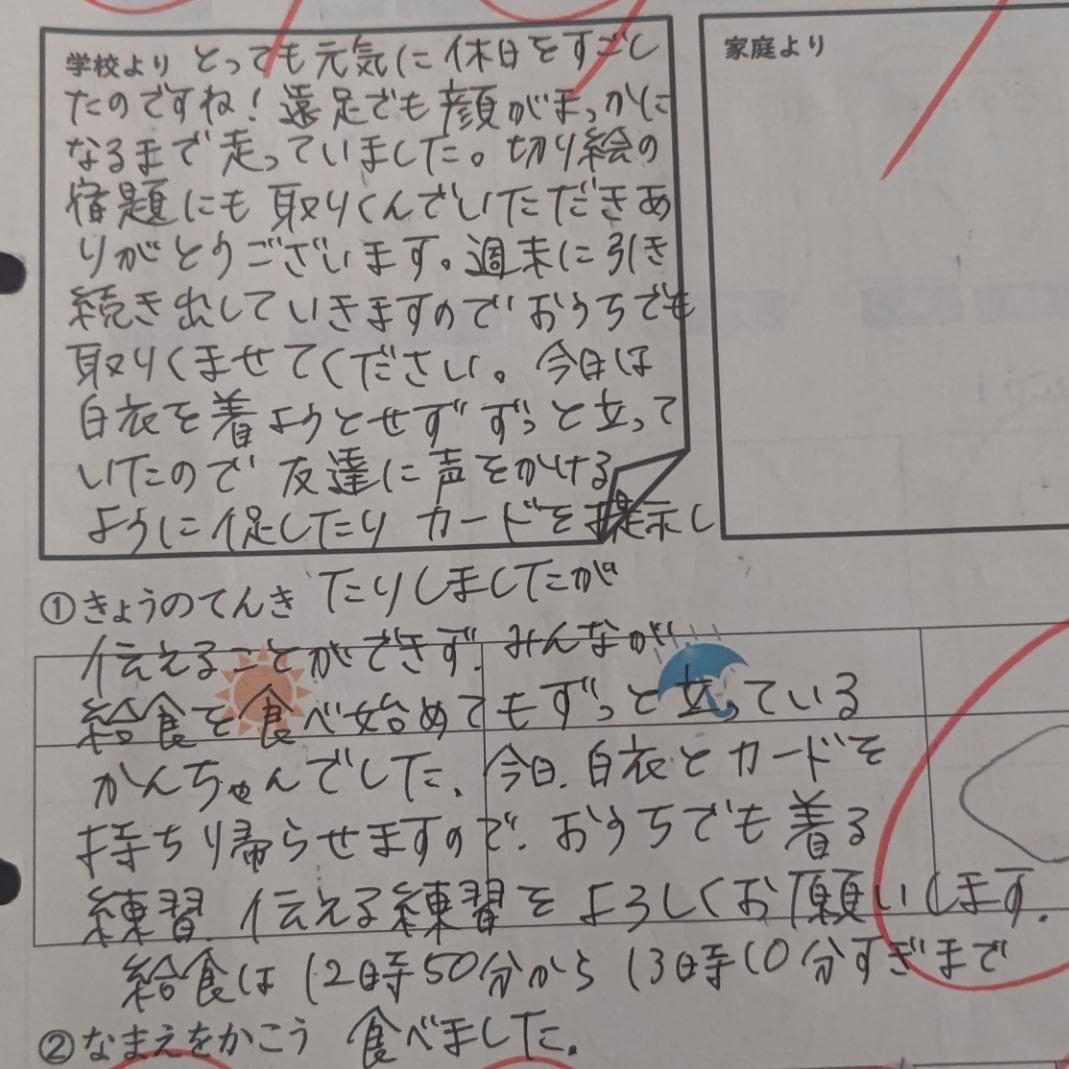 学校より とっても元気に休日をすごし
たのですね！遠足でも顔がまっかに
なるまで走っていました。切り絵の
宿題にも取りくんでいただきあ
りがとうございます。週末に引き
続き出していきますので、おうちでも
取りくませてください。今日は
白衣を着ようとせず ずっと立って
いたので、友達に声をかける
ように促したり カードを提示し
家庭より
①きょうのてんき たりしましたが
伝えることができず、みんなが
給食を食べ始めてもずっと立っている
かんちゃんでした。今日、白衣とカードを
持ち帰らせますので、おうちでも着る
練習、伝える練習をよろしくお願いします。
給食は12時50分から13時10分すぎまで
②なまえをかこう 食べました。